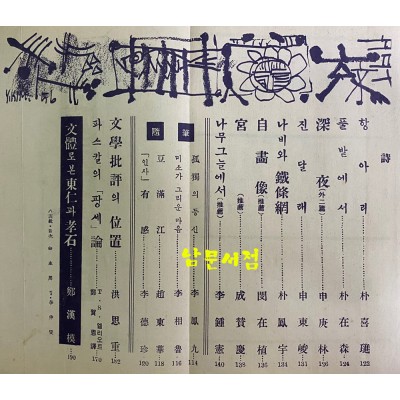 詩
항아리 朴喜璡 122
풀밭에서 朴在森 125
深夜 (外二篇) 申庚林 126
진달래 申東曉
나비와 鐵條網 朴鳳宇 135
自畵像 (推薦) 閔在植 136
宮 (推薦) 成賛慶 138
나무그늘에서 (推薦) 李鍾憲 140
隨筆
孤獨의 등신 李鳳九 114
미소가 그리운 마음 李相魯 116
豆滿江 趙東華 118
「인사」有感 李德珍 120
文學批評의 位置 洪思重 182
파스칼의「팡세」論 T·S·엘리오트
譯 172
文體로 본 東仁과 孝石 鄭漢模 190
남문서점